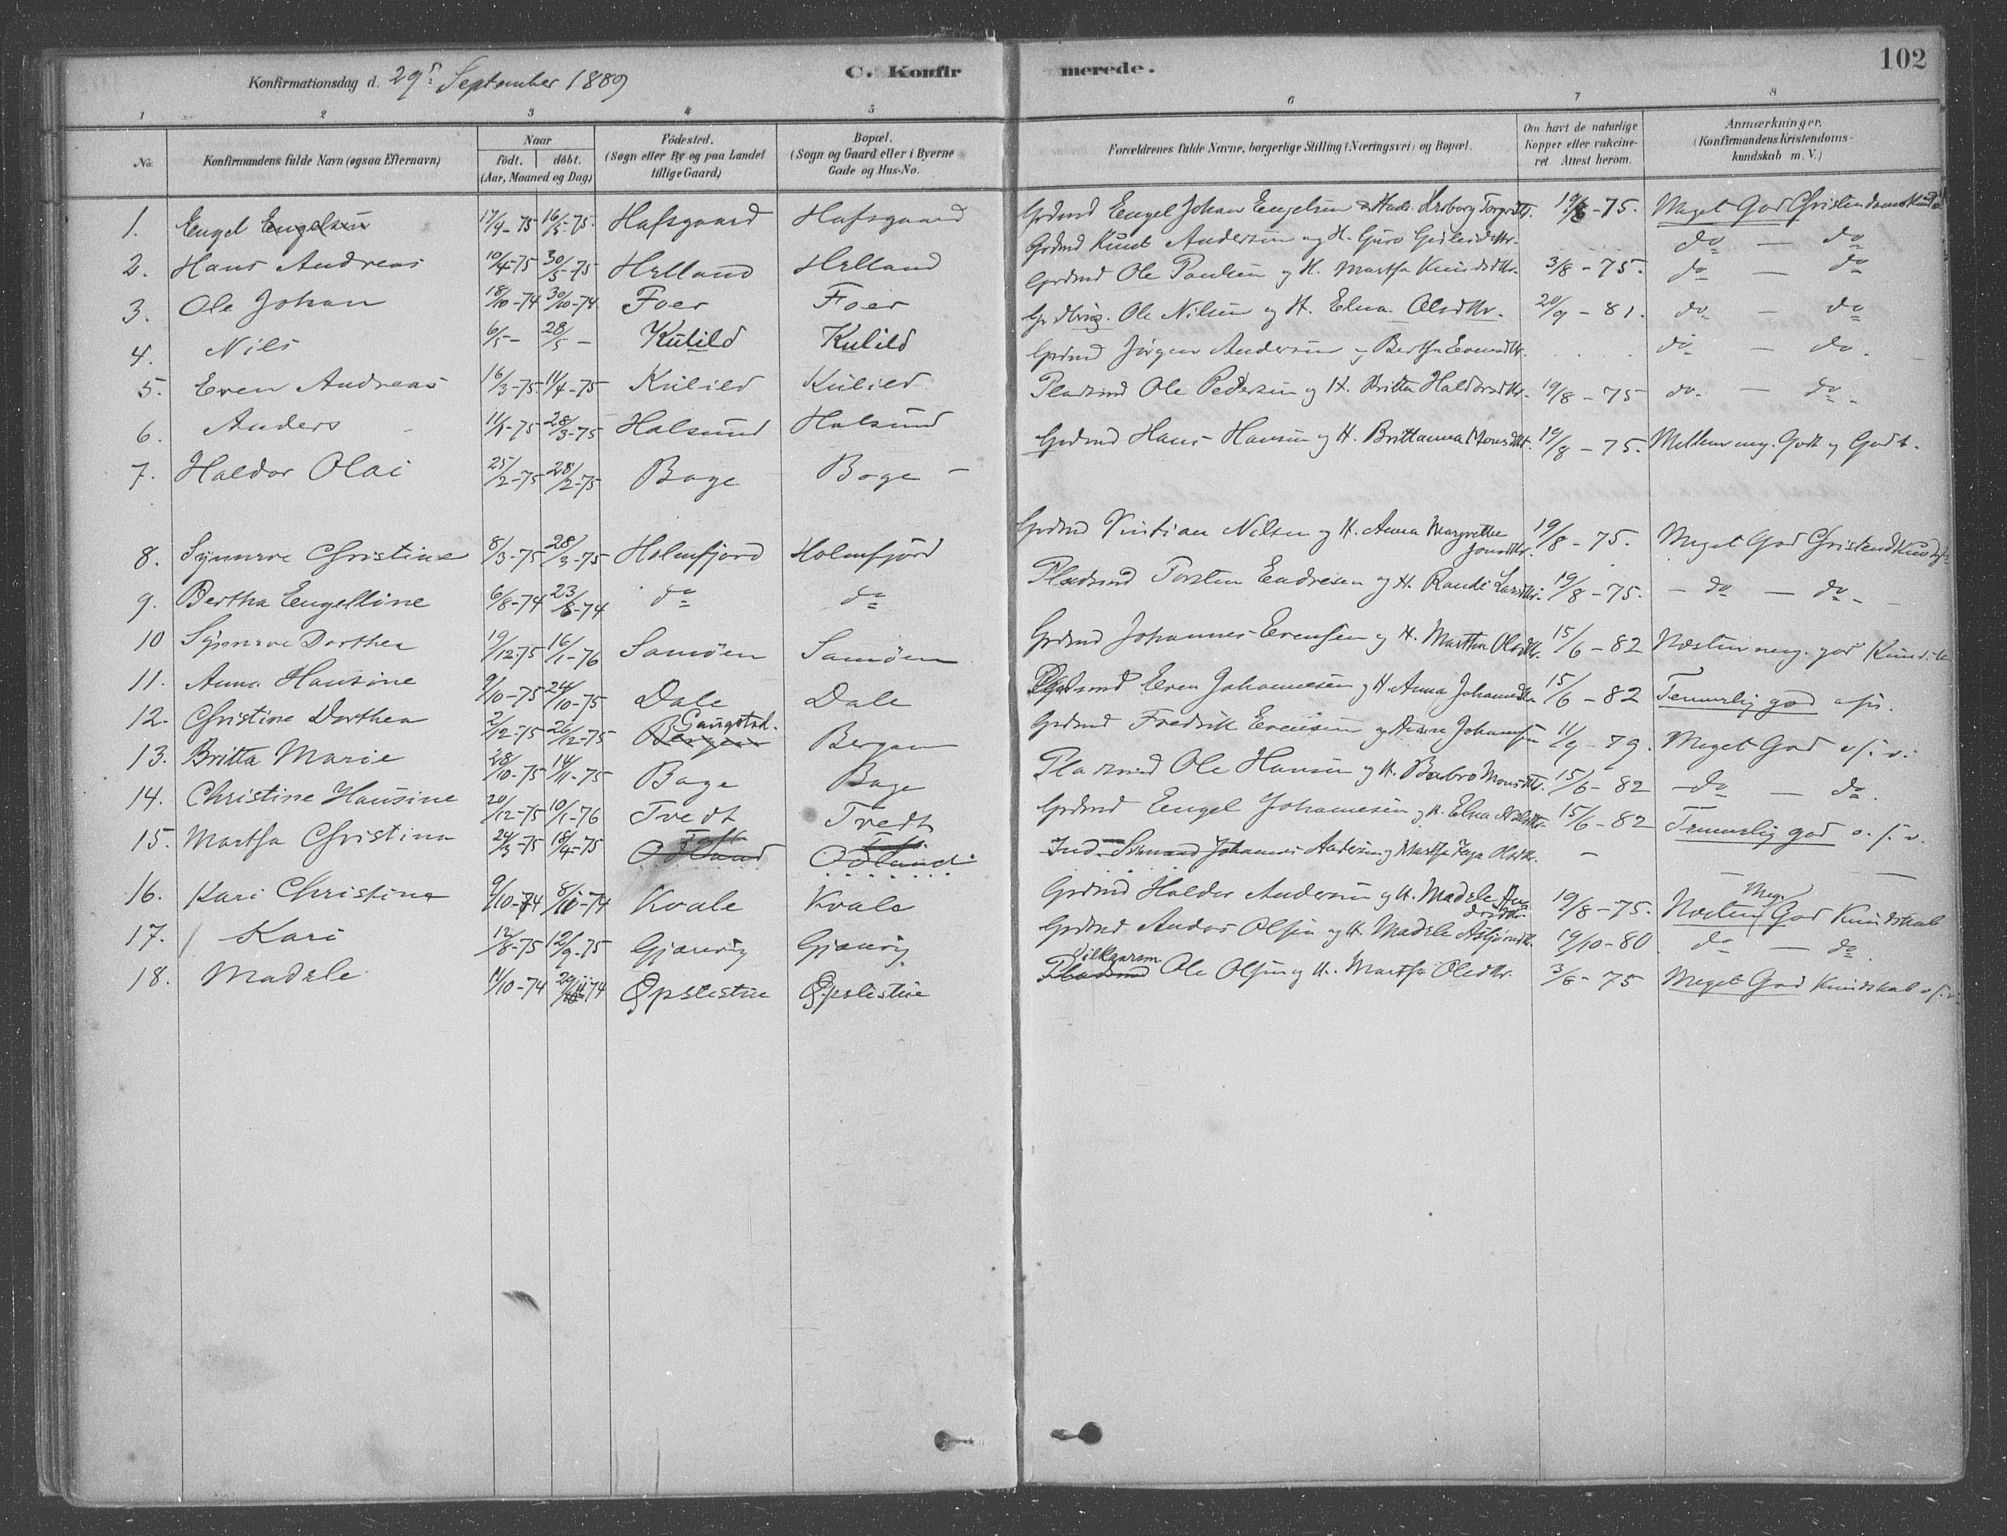 Konfirmationsdag d. 29. September 1889
C. Konfirmerede.
102
1 2 3 4 5 6 7 8
No.
Konfirmandens fulde Navn (ogsaa Efternavn)
Naar
födt. döbt.
(Aar, Maaned og Dag)
Födested.
(Sogn eller By og paa Landet
tillige Gaard)
Bopæl.
(Sogn og Gaard eller i Byerne
Gade og Hus-No.
Forældrenes fulde Navne, borgerlige Stilling (Næringsvei) og Bopæl.
Om havt de naturlige
Kopper eller vakcine-
ret. Attest herom.
Anmærkninger.
(Konfirmandens Kristendoms-
kundskab m. V.)
1. Engel Engelsen 17/4-75 16/5-75. Hafsgaard Hafsgaard Grdmd Engel Johan Engelsen 19/8-75. Meget God Christendomskund
2. Hans Andreas 10/4-75 30/5-75 Helland Helland Grdmd Knut Andersen og H. Guro do — do
3. Ole Johan 18/10-74 30/10-74 Foer Foer Grdmd Ole Paulsen og H. Martha Knudsdtr. 3/8-75. do — do
4. Nils 6/5- 28/5- Kulild Kulild Ole Nilsen og H. Elna Olsdtr. 20/9-81. do — do
5. Even Andreas 16/3-75 11/4-75 Kulild Kulild Grdmd Jörgen Andersen og Bertha do — do.
6. Anders 11/1-75 28/3-75 Halsund Halsund Pladsmd Ole Pedersen og H. Britta Haldorsdtr. 19/8-75 do — do.
7. Haldor Olai 25/2-75 28/2-75 Boge Boge Grdmd Hans Hansen og H. Brittanna Monsdtr. 19/8-75. Mellem meg. Godt og Godt.
8. Synneve Christine 8/3-75 28/3-75 Holmfjord Holmfjord Grdmd Nilsen og H. Anna Margrethe Jonsdtr. 19/8-75. Meget God
9. Bertha Engelline 6/8-74 23/8-74 do do Pladsmd Torsten Endresen og H. Randi Larsdtr. 19/8-75. - do — do -
10 Synneve Dorthea 19/12-75 16/1-76 Samöen Samöen Grdmd Johannes Evensen og H. Martha Olsdtr. 15/6-82 Næsten meg. god
11. Anna Hansine 9/10-75 24/10-75 Dale Dale Even Johannesen og H. Anna 15/6-82 Temmelig god
12. Christine Dorthea 2/12-75 26/12-75 Bergen Bergen Grdmd Fredrik Evensen og 11/9-79. Meget God o. s. v.
13. Britta Marie 28/10-75 14/11-75 Boge Boge Pladsmd Ole Hansen og H. Babro Monsdtr. 15/6-82 - do — do.
14. Christine Hansine 20/12-75 10/1-76 Tvedt Tvedt Grdmd Engel Johannesen og H. Elna 15/6-82 Temmelig god o. s. v.
15. Martha Christina 24/3-75 18/4-75 Odland Odland. Ind. Johannes Andersen og Martha Inga Olsdtr. — — —
16. Kari Christine 9/10-74 8/11-74 Kvale Kvale Grdmd Haldor Andersen og H. Madele Andersdtr. 19/8-75. Næsten Meget God Kundskab
17. Kari 12/8-75 12/9-75 Gjærvig Gjærvig. Grdmd Anders Olsen og H. Madele Asbjörndtr. 19/10-80 do — do.
18. Madele 11/10-74 Epslestue Epslestue Pladsmd Ole Olsen og H. Martha Olsdtr. 3/6-75 Meget God Kundskab o. s. v.